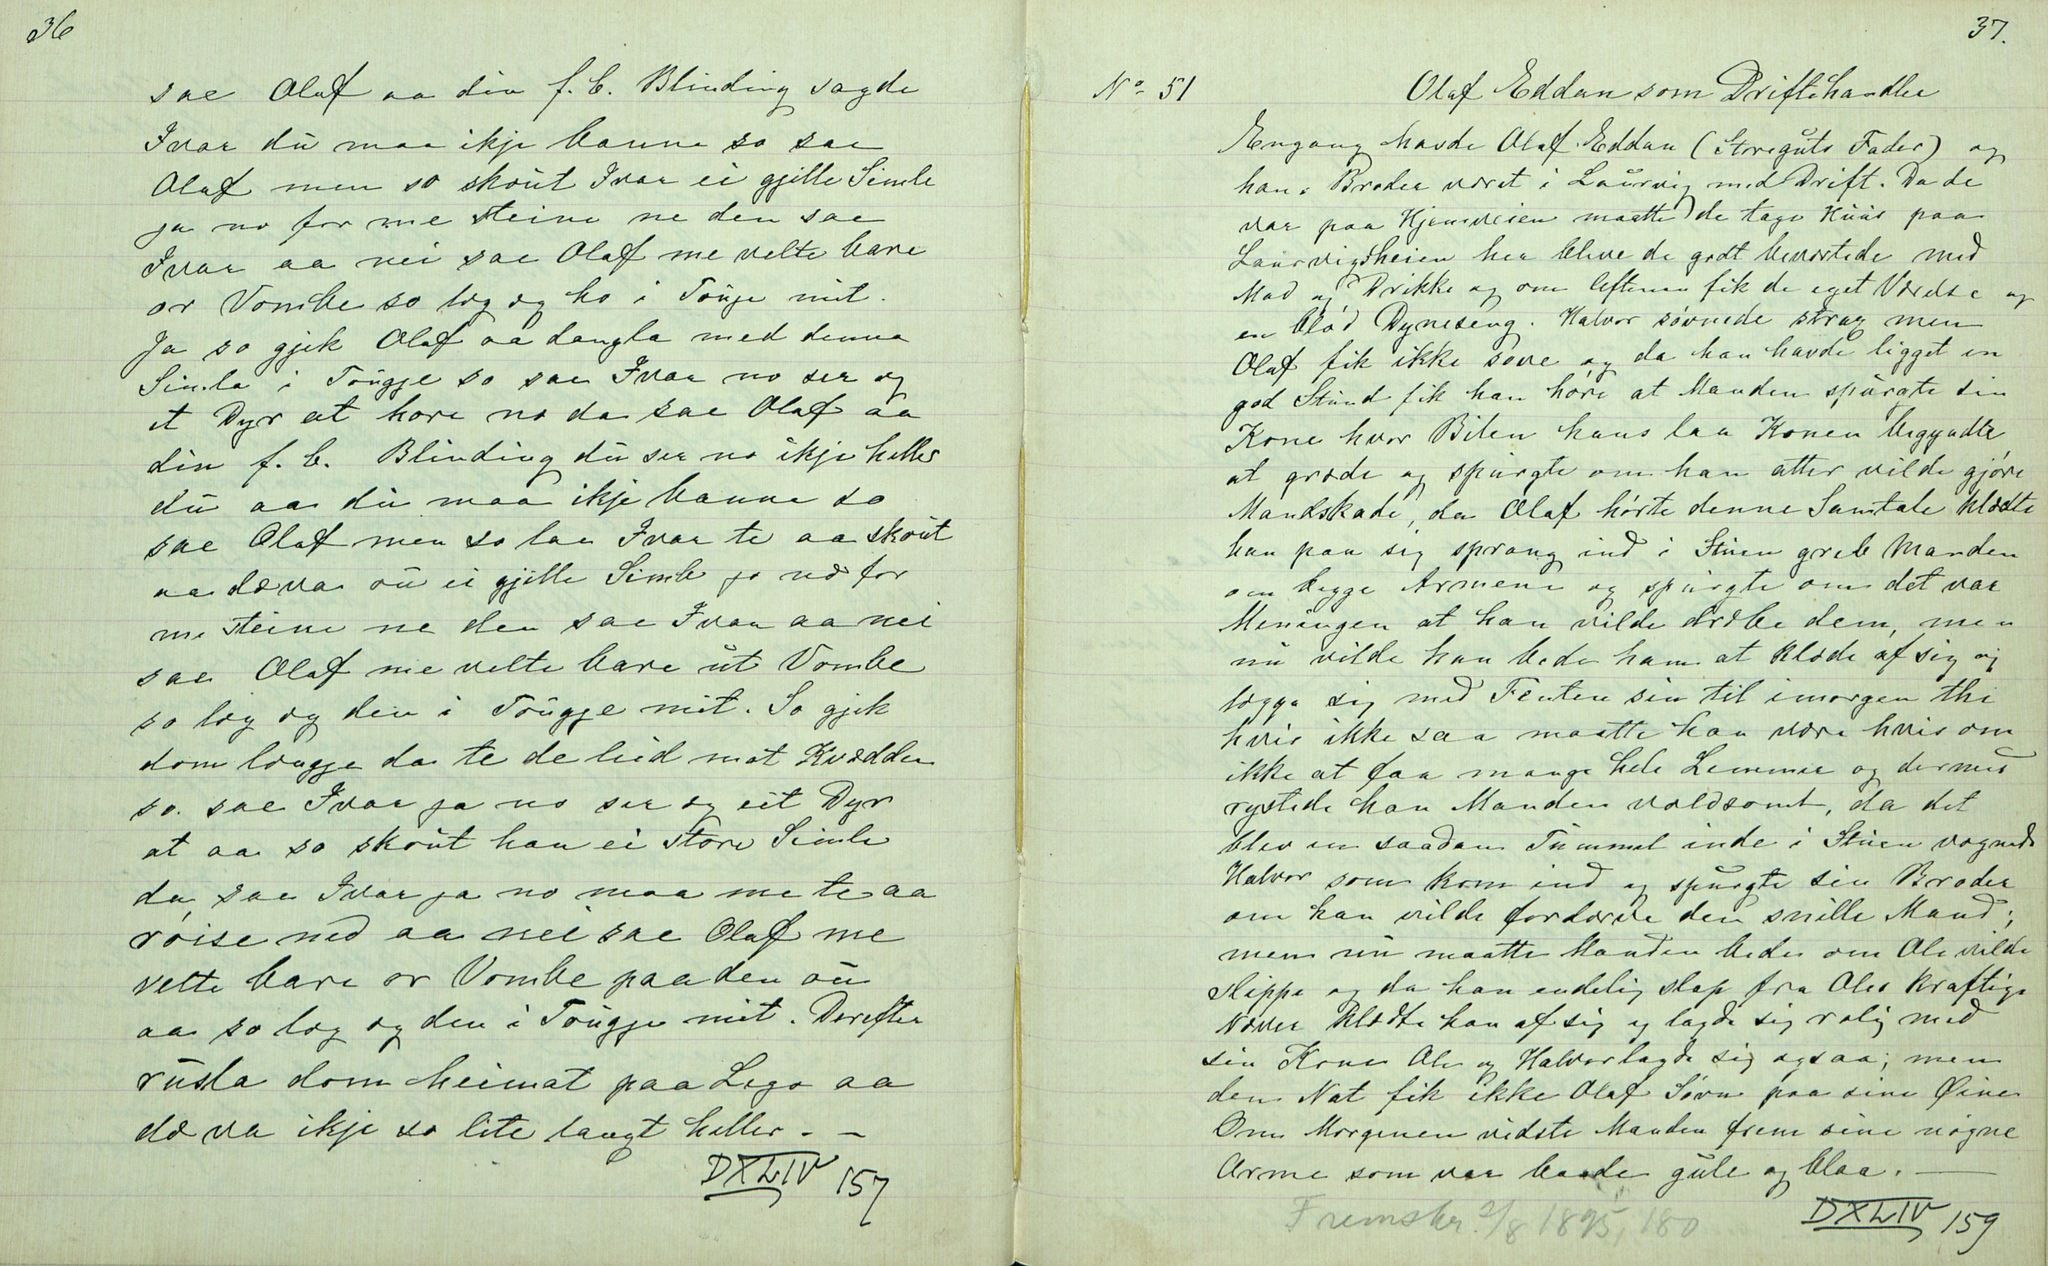 36
sae Olaf aa din f. b. Blinding sagde
Ivar du maa ikje banne so sae
Olaf men so skout Ivar ei gjille Simle
ja no for me steine ne den sae
Ivar aa nei sae Olaf me velte bare
or Vombe so læg eg ho i Tougje mit.
Ja so gjek Olaf aa dangla med denna
Simla i Tougje so sae Ivar no ser eg
et Dyr at hore no da sae Olaf aa
din f. b. Blinding du ser no ikje heller
du aa du maa ikje banne so
sae Olaf men so laa Ivar te aa skout
aa dæ va ou ei gjille Simle ja no for
me steine ne den sae Ivar aa nei
sae Olaf me velte bare ut Vombe
so læg eg den i Tougje mit. So gjek
dom længje da te de lid mot Kvædden
so sae Ivar ja no ser eg eit Dyr
at aa so skout han ei store Simle
da sae Ivar ja no maa me te aa
röise ned aa nei sae Olaf me
velte bare or Vombe paa den ou
aa so læg eg den i Tougje mit. Derefter
rusla dom heimat paa Lego aa
dæ va ikje so lite langt heller. –
DXLIV 157
37.
No 51 Olaf Eddan som Driftehandler
Engang havde Olaf Eddan (Storeguts Fader) og
hans Broder været i Laurvig med Drift. Da de
var paa Hjemveien maatte de tage Huus paa
Laurvigsheien her bleve de godt beværtede med
Mad og Drikke og om Aftenen fik de eget Værelse og
en blød Dyneseng. Halvor sovnede strax men
Olaf fik ikke sove og da han havde ligget en
god Stund fik han høre at Manden spurgte sin
Kone hvor Bilen hans laa Konen begyndte
at græde og spurgte om han atter vilde gjøre
Mandskade, da Olaf hørte denne Samtale klædte
han paa sig sprang ind i Stuen greb Manden
om begge Armene og spurgte om det var
Meningen at han vilde dræbe dem, men
nu vilde han bede ham at klæde af sig og
lægge sig med Fenten sin til imorgen thi
hvis ikke saa maatte han være hvis om
ikke at faa mange hele Lemmer og dermed
rystede han Manden voldsomt, da det
blev en saadan Tummel inde i Stuen vognede
Halvor som kom ind og spurgte sin Broder
om han vilde fordærve den snille Mand;
men nu maatte Manden bede om Ole vilde
slippe og da han endelig slap fra Oles kraftige
Næver klædte han af sig og lagde sig rolig med
sin Kone Ole og Halvor lagde sig ogsaa; men
den Nat fik ikke Olaf Søvn paa sine Øine
Om Morgenen vidste Manden frem sine nøgne
Arme som var baade gule og blaa. —
Fremskr. 2/8 1895, 180
DXLIV 159